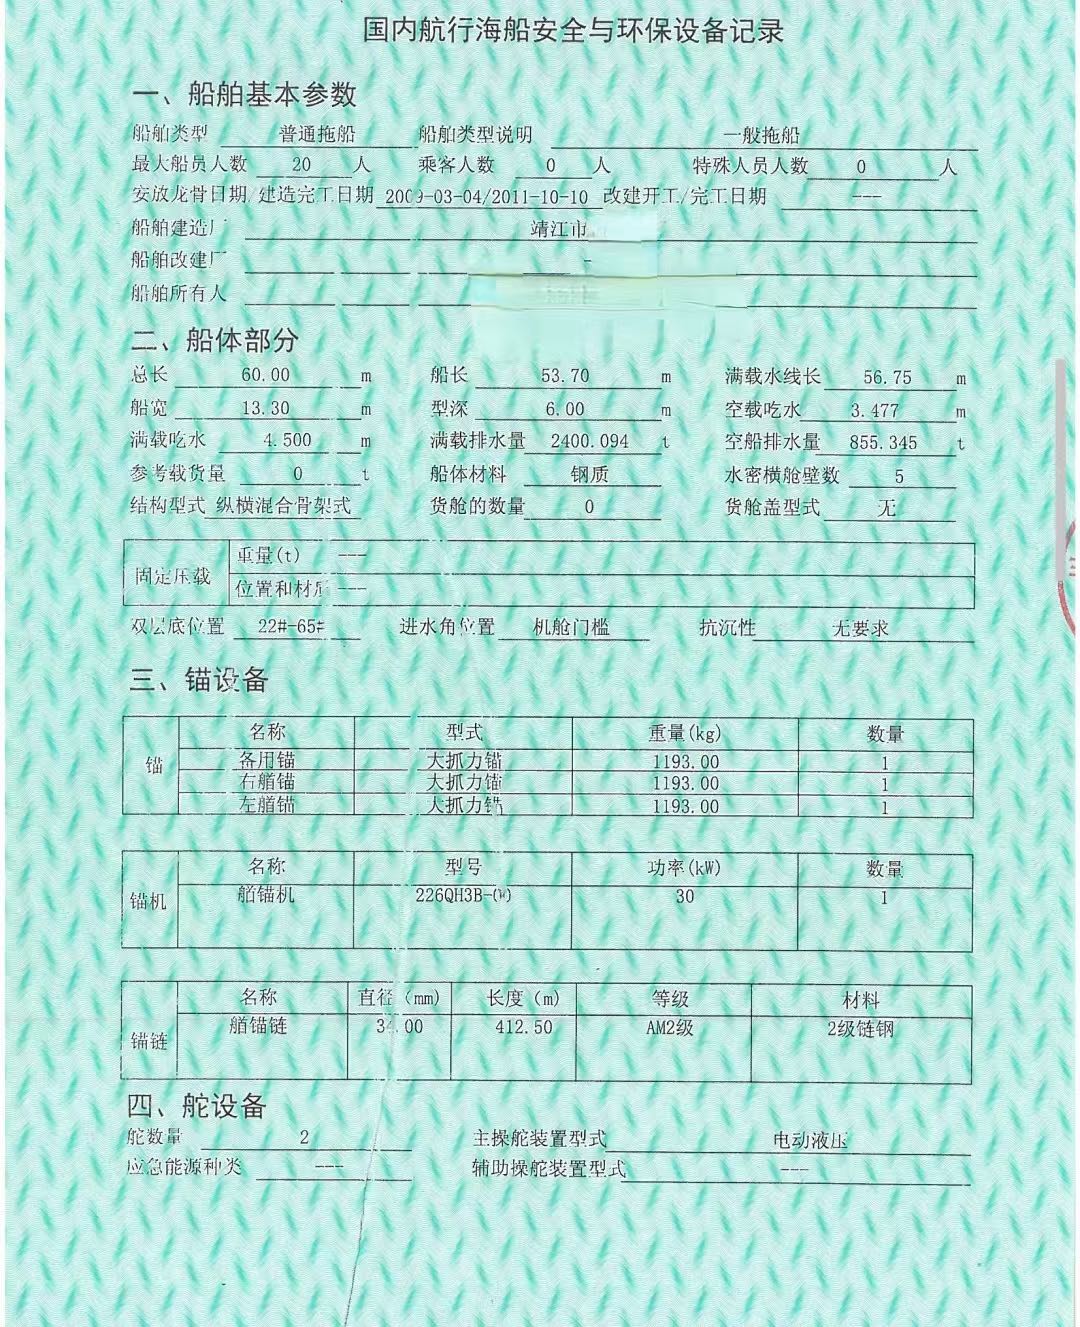 国内航行海船安全与环保设备记录
一、船舶基本参数
船舶类型 普通拖船 船舶类型说明 一般拖船
最大船员人数 20 人 乘客人数 0 人 特殊人员人数 0 人
安放龙骨日期/建造完工日期 2009-03-04/2011-10-10 改建开工/完工日期 ---
船舶建造厂 靖江市
船舶改建厂 -
船舶所有人
二、船体部分
总长 60.00 m 船长 53.70 m 满载水线长 56.75 m
船宽 13.30 m 型深 6.00 m 空载吃水 3.477 m
满载吃水 4.500 m 满载排水量 2400.094 t 空船排水量 855.345 t
参考载货量 0 t 船体材料 钢质 水密横舱壁数 5
结构型式 纵横混合骨架式 货舱的数量 0 货舱盖型式 无
固定压载 重量(t) ---
位置和材质 ---
双层底位置 22#-65# 进水角位置 机舱门槛 抗沉性 无要求
三、锚设备
锚 名称 型式 重量(kg) 数量
备用锚 大抓力锚 1193.00 1
右艏锚 大抓力锚 1193.00 1
左艏锚 大抓力锚 1193.00 1
锚机 名称 型号 功率(kW) 数量
艏锚机 226QH3B-(W) 30 1
锚链 名称 直径(mm) 长度(m) 等级 材料
艏锚链 34.00 412.50 AM2级 2级链钢
四、舵设备
舵数量 2 主操舵装置型式 电动液压
应急能源种类 --- 辅助操舵装置型式 ---